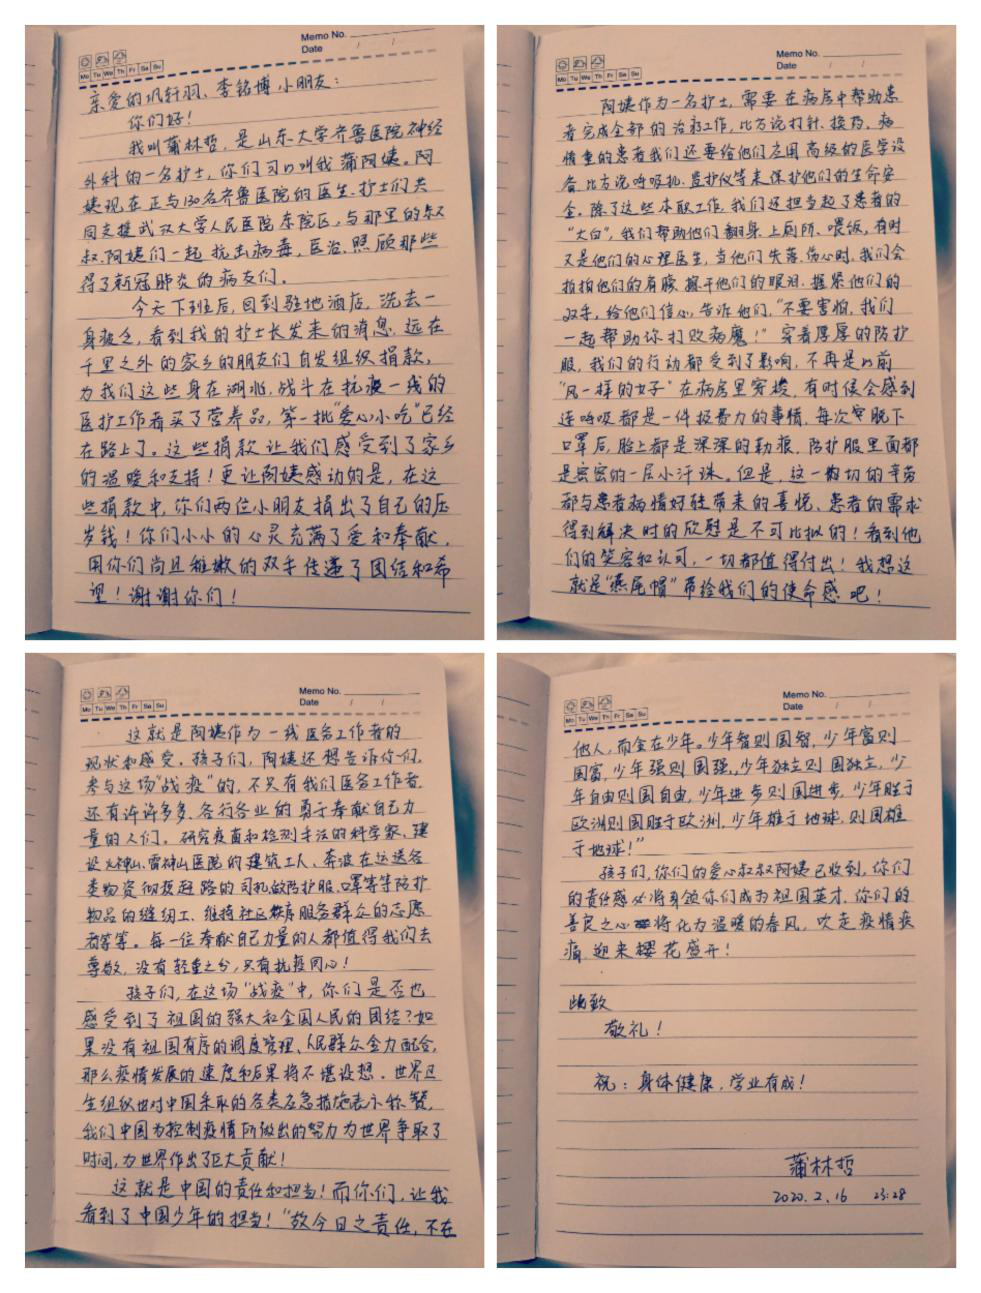 Memo No.
Date / /
Mo Tu We Th Fr Sa Su
亲爱的巩轩羽、李铭博小朋友：
你们好！
我叫蒲林哲，是山东大学齐鲁医院神经
外科的一名护士，你们可以叫我蒲阿姨。阿
姨现在正与130名齐鲁医院的医生、护士们共
同支援武汉大学人民医院东院区，与那里的叔
叔、阿姨们一起抗击病毒，医治、照顾那些
得了新冠肺炎的病友们。
今天下班后，回到驻地酒店，洗去一
身疲乏，看到我的护士长发来的消息，远在
千里之外的家乡的朋友们自发组织捐款，
为我们这些身在湖北，战斗在抗疫一线的
医护工作者买了营养品，第一批“爱心小吃”已经
在路上了。这些捐款让我们感受到了家乡
的温暖和支持！更让阿姨感动的是，在这
些捐款中，你们两位小朋友捐出了自己的压
岁钱！你们小小的心灵充满了爱和奉献，
用你们尚且稚嫩的双手传递了团结和希
望！谢谢你们！
Memo No.
Date / /
Mo Tu We Th Fr Sa Su
阿姨作为一名护士，需要在病房中帮助患
者完成全部的治疗工作，比方说打针、换药，病
情重的患者我们还要给他们应用高级的医学设
备，比方说呼吸机、监护仪等来保护他们的生命安
全。除了这些本职工作，我们还担当起了患者的
“大白”，我们帮助他们翻身、上厕所、喂饭，有时
又是他们的心理医生，当他们失落、伤心时，我们会
拍拍他们的肩膀，擦干他们的眼泪，握紧他们的
双手，给他们信心，告诉他们，“不要害怕，我们
一起帮助你打败病魔！”穿着厚厚的防护
服，我们的行动都受到了影响，不再是以前
“风一样的女子”在病房里穿梭，有时候会感到
连呼吸都是一件极费力的事情，每次脱下
口罩后，脸上都是深深的勒痕，防护服里面都
是密密的一层小汗珠。但是，这一切的辛劳
都与患者病情好转带来的喜悦、患者的需求
得到解决时的欣慰是不可比拟的！看到他
们的笑容和认可，一切都值得付出！我想这
就是“燕尾帽”带给我们的使命感吧！
Memo No.
Date / /
Mo Tu We Th Fr Sa Su
这就是阿姨作为一线医务工作者的
现状和感受。孩子们，阿姨还想告诉你们，
参与这场“战疫”的，不只有我们医务工作者，
还有许许多多、各行各业的勇于奉献自己力
量的人们。研究疫苗和检测手法的科学家、建
设火神山、雷神山医院的建筑工人、奔波在运送各
类物资彻夜赶路的司机、做防护服、口罩等等防护
物品的缝纫工、维持社区秩序服务群众的志愿
者等等。每一位奉献自己力量的人都值得我们去
尊敬，没有轻重之分，只有抗疫同心！
孩子们，在这场“战疫”中，你们是否也
感受到了祖国的强大和全国人民的团结？如
果没有祖国有序的调度管理、人民群众全力配合，
那么疫情发展的速度和后果将不堪设想。世界卫
生组织也对中国采取的各类应急措施表示称赞，
我们中国为控制疫情所做出的努力为世界争取了
时间，为世界作出了巨大贡献！
这就是中国的责任和担当！而你们，让我
看到了中国少年的担当！“故今日之责任，不在
Memo No.
Date / /
Mo Tu We Th Fr Sa Su
他人，而全在少年。少年智则国智，少年富则
国富，少年强则国强，少年独立则国独立，少
年自由则国自由，少年进步则国进步，少年胜于
欧洲则国胜于欧洲，少年雄于地球，则国雄
于地球！”
孩子们，你们的爱心叔叔阿姨已收到，你们
的责任感必将引领你们成为祖国英才，你们的
善良之心将化为温暖的春风，吹走疫情疾
痛，迎来樱花盛开！
此致
敬礼！
祝：身体健康，学业有成！
蒲林哲
2020.2.16 23:28